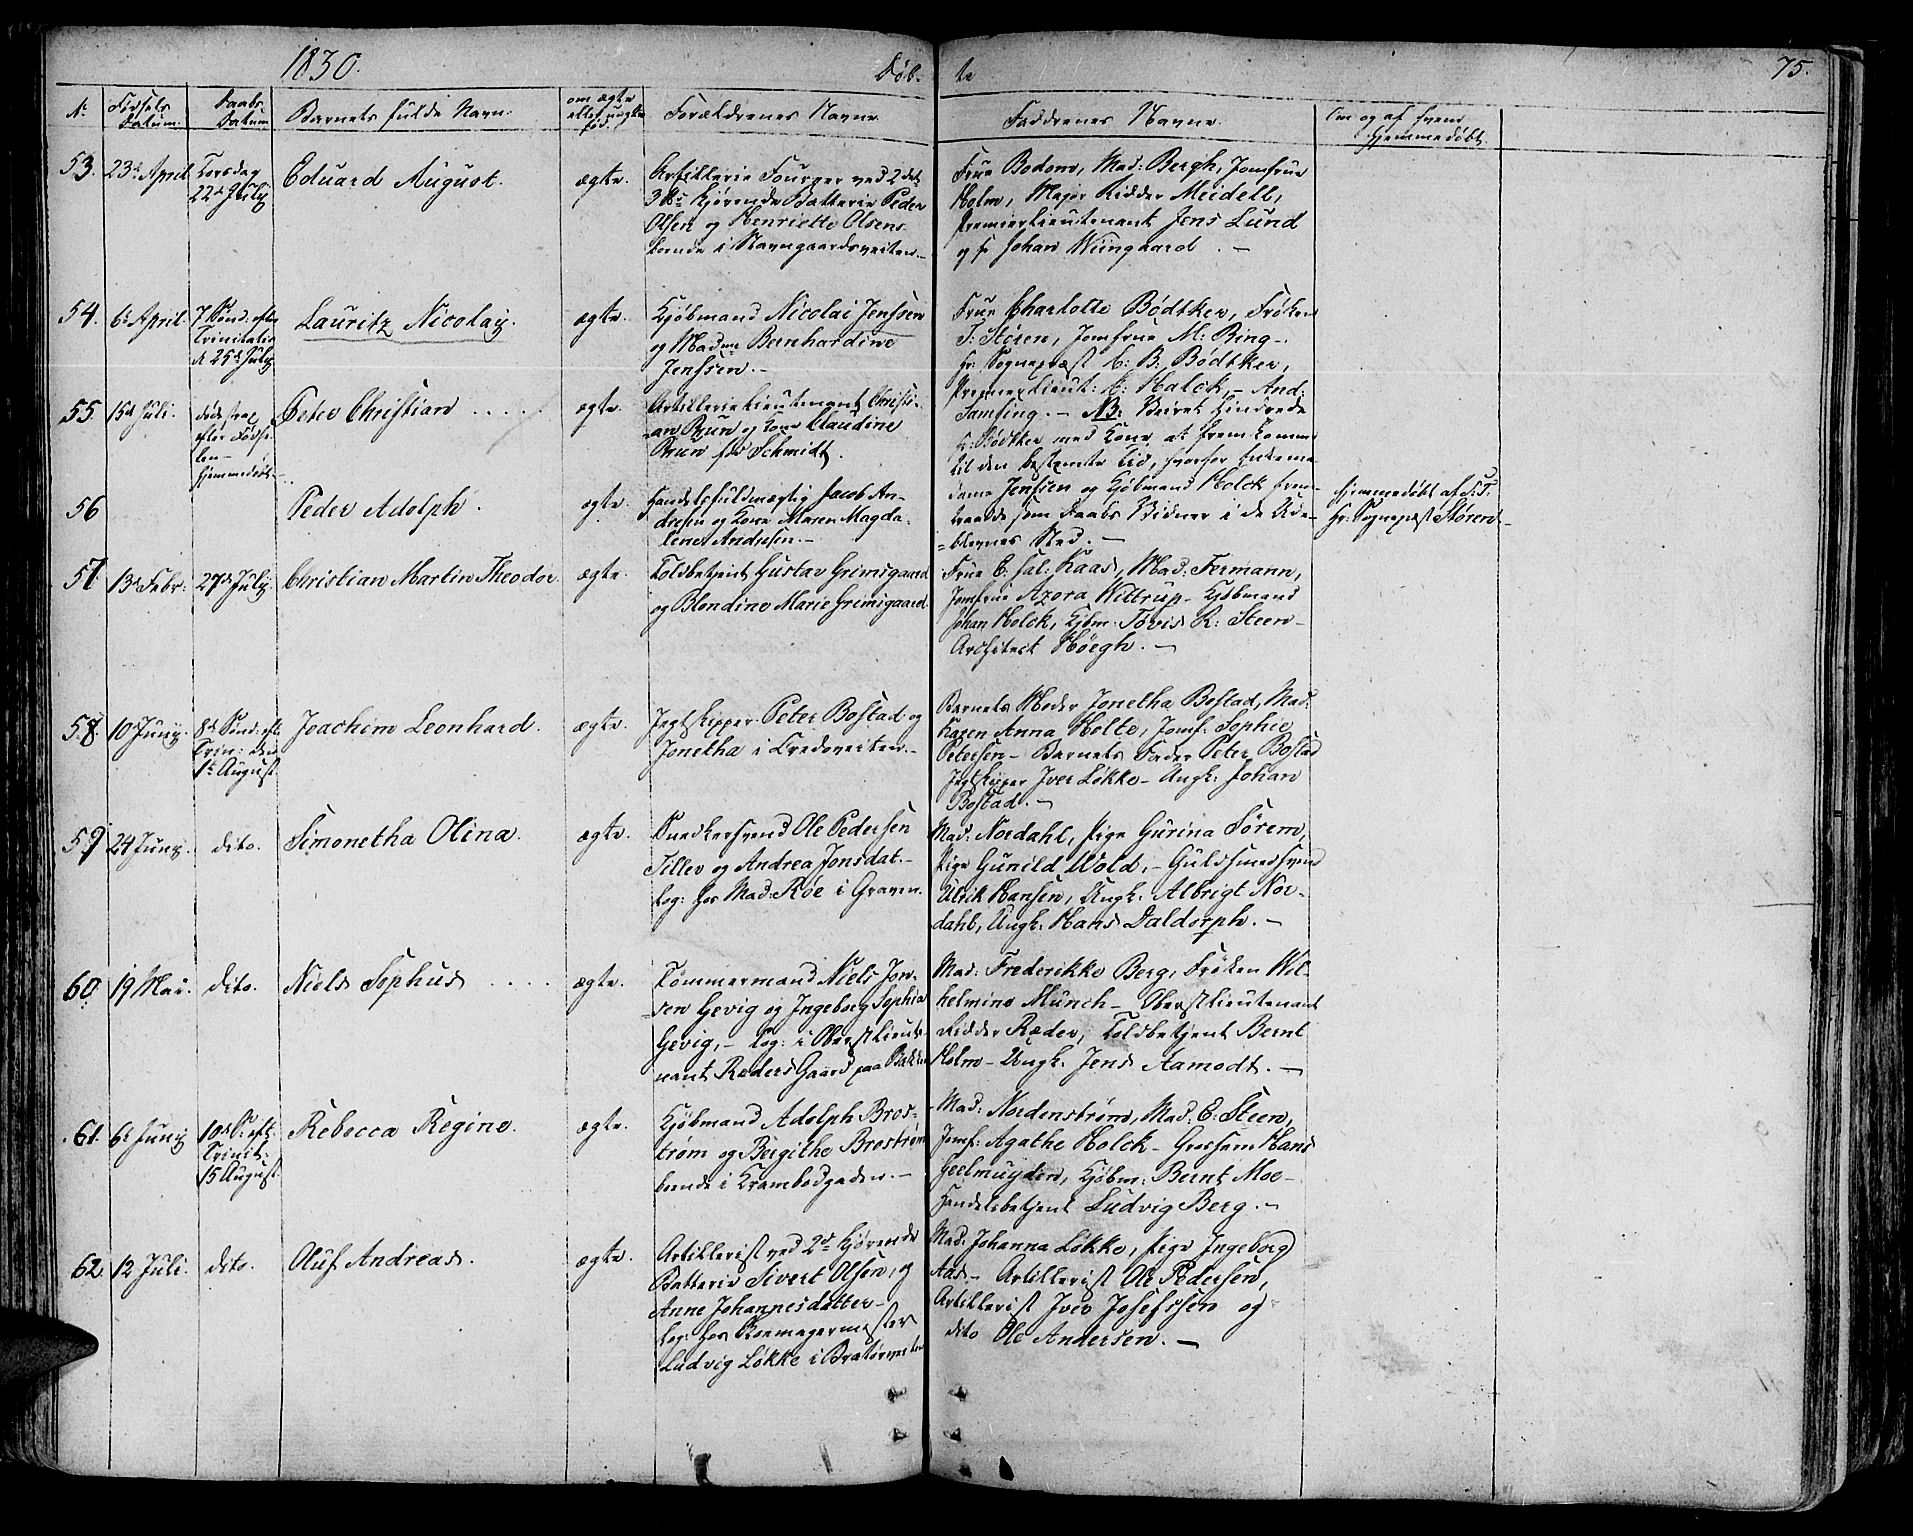 1830.
Døb-
te
75.
N:
Fødsels Datum.
Daabs Datum
Barnets fulde Navn.
om ægte eller uægte fød.
Forældrenes Navne
Faddrenes Navne.
Om og af hvem hjemmedøbt.
53. 23d April. Torsdag 22d July Eduard August. ægte.
Artillerie Fourer ved 2det
3 &: Kjørende Batterie Peder
Olsen og Henriette Olsen
boende i Navngaardsveiten.-
Frue Bodom, Mad: Bergh, Jomfrue
Holm, Major Ridder Meidell,
Premierlieutenant Jens Lund
og hr Johan Wiingaard. -
54. 6d April. 7 Sønd: efter Trinitatis d. 25d July Lauritz Nicolay. ægte.
Kjøbmand Nicolai Jenssen
og Madme Bernhardine
Jenssen.-
Frue Charlotte Bødtker, Frøken
T: Støren, Jomfrue M: Bing-
hr: Sognepræst C: B: Bødtker,
Premierlieut: C: Halck,- And:
Samsing.- NB: Veiret hindrede
H: Bødtker med Kone at fremkomme
til den bestemte tid, hvorfor Enkema-
dame Jenssen og Kjøbmand Holck frem-
traadde som Daabs Vidner i de Ude-
blevnes Sted.-
55. 15d Juli. døde strax efter Fødse- len- hjemmedøbt- Peter Christian ..... ægte.
Artillerielieutenant Christi-
an Brun og Kone Claudine
Brun født Schmidt.
56 Peder Adolph. ægte.
Handelsfuldmægtig Jacob An-
dresen og Kone Maren Magda-
lene Andresen.-
Hjemmedøbt af S: T:
Hr: Sognepræst Støren-
57 13d Febr: 27d July. Christian Martin Theodor. ægte.
Toldbetjent Gustav Grimsgaard
og Blondine Marie Grimsgaard.
Frue E: sal: Kaas, Mad: Fermann,
Jomfrue Azora Wittrup- Kjøbmand
Johan Holck, Kjøbm: Tøvis R: Steen-
Architect Høegh.-
58. 10d Juny. 8d Sønd: eft: Trin: den 1te August Joachim Leonhard. ægte.
Jegtskipper Peter Bostad og
Jonetha i Credoveiten.-
Barnets Moder Jonetha Bostad, Mad:
Karen Anna Holte, Jomf: Sophie
Petersen- Barnets Fader Peter Bostad
Jegtskipper Iver Løkke- Ungk: Johan
Bostad.-
59 24 Juny. dito. Simonetha Olina. ægte.
Snedkersvend Ole Pedersen
Tiller og Andrea Jonsdat.-
log: hos Mad: Røe i Graven.
Mad: Nordahl, Pige Gurina Sørem,
Pige Gunild Wold,- Guldsmedsvend
Ulrik Hansen, Ungk: Albrigt Nor-
dahl, Ungk: Hans Daldorph.-
60. 19 Mai. dito. Niels Sophus ..... ægte.
Tømmermand Niels Jon-
sen Gevig og Ingeborg Sophia
Gevig,- log: i Oberstlieute-
nant Ræders Gaard paa Bakken
Mad: Frederikke Berg, Frøken Wil-
helmine Münch- Oberstlieutenant
Ridder Ræder, Toldbetjent Bernt
Holm- Ungk: Jens Aamodt.-
61. 6d Juny 10d S: eft: Trinit: 15 August. Rebecca Regine. ægte.
Kjøbmand Adolph Bros-
trøm og Bergithe Brostrøm
boende i Krambodgaden.-
Mad: Nordenstrøm, Mad: E: Steen,
Jomf: Agathe Holck- Grossere Hans
Geelmuyden, Kjøbm: Bernt Moe-
Handelsbetjent Ludvig Berg.-
62. 12 Juli. dito. Oluf Andreas. ægte.
Artillerist ved 2d Kjørende
Batterie Sivert Olsen, og
Anne Johannesdatter-
log: hos Skomagermester
Ludvig Løkke i Bratørveiten
Mad: Johanna Løkke, Pige Ingeborg
Aas- Artillerist Ole Pedersen,
Artillerist Iver Josefssen og
dito Ole Andersen.-